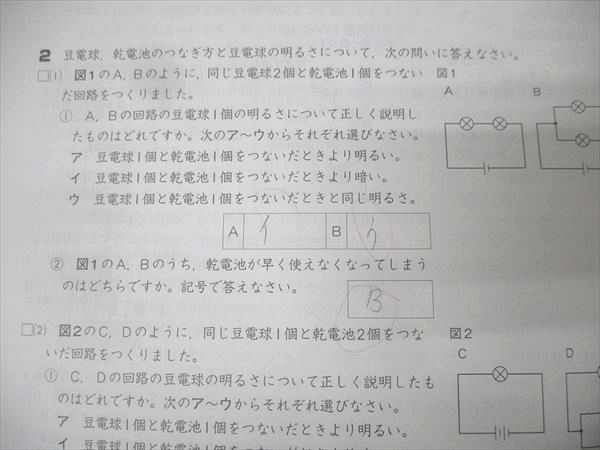 2 豆電球，乾電池のつなぎ方と豆電球の明るさについて，次の問いに答えなさい。
□(1) 図1のA，Bのように，同じ豆電球2個と乾電池1個をつない
だ回路をつくりました。
① A，Bの回路の豆電球1個の明るさについて正しく説明し
たものはどれですか。次のア〜ウからそれぞれ選びなさい。
ア 豆電球1個と乾電池1個をつないだときより明るい。
イ 豆電球1個と乾電池1個をつないだときより暗い。
ウ 豆電球1個と乾電池1個をつないだときと同じ明るさ。
A イ B う
② 図1のA，Bのうち，乾電池が早く使えなくなってしまう
のはどちらですか。記号で答えなさい。
B
図1
A B
□(2) 図2のC，Dのように，同じ豆電球1個と乾電池2個をつな
いだ回路をつくりました。
① C，Dの回路の豆電球の明るさについて正しく説明したも
のはどれですか。次のア〜ウからそれぞれ選びなさい。
ア 豆電球1個と乾電池1個をつないだときより明るい。
イ 豆電球1個と乾電池1個をつないだ
図2
C D